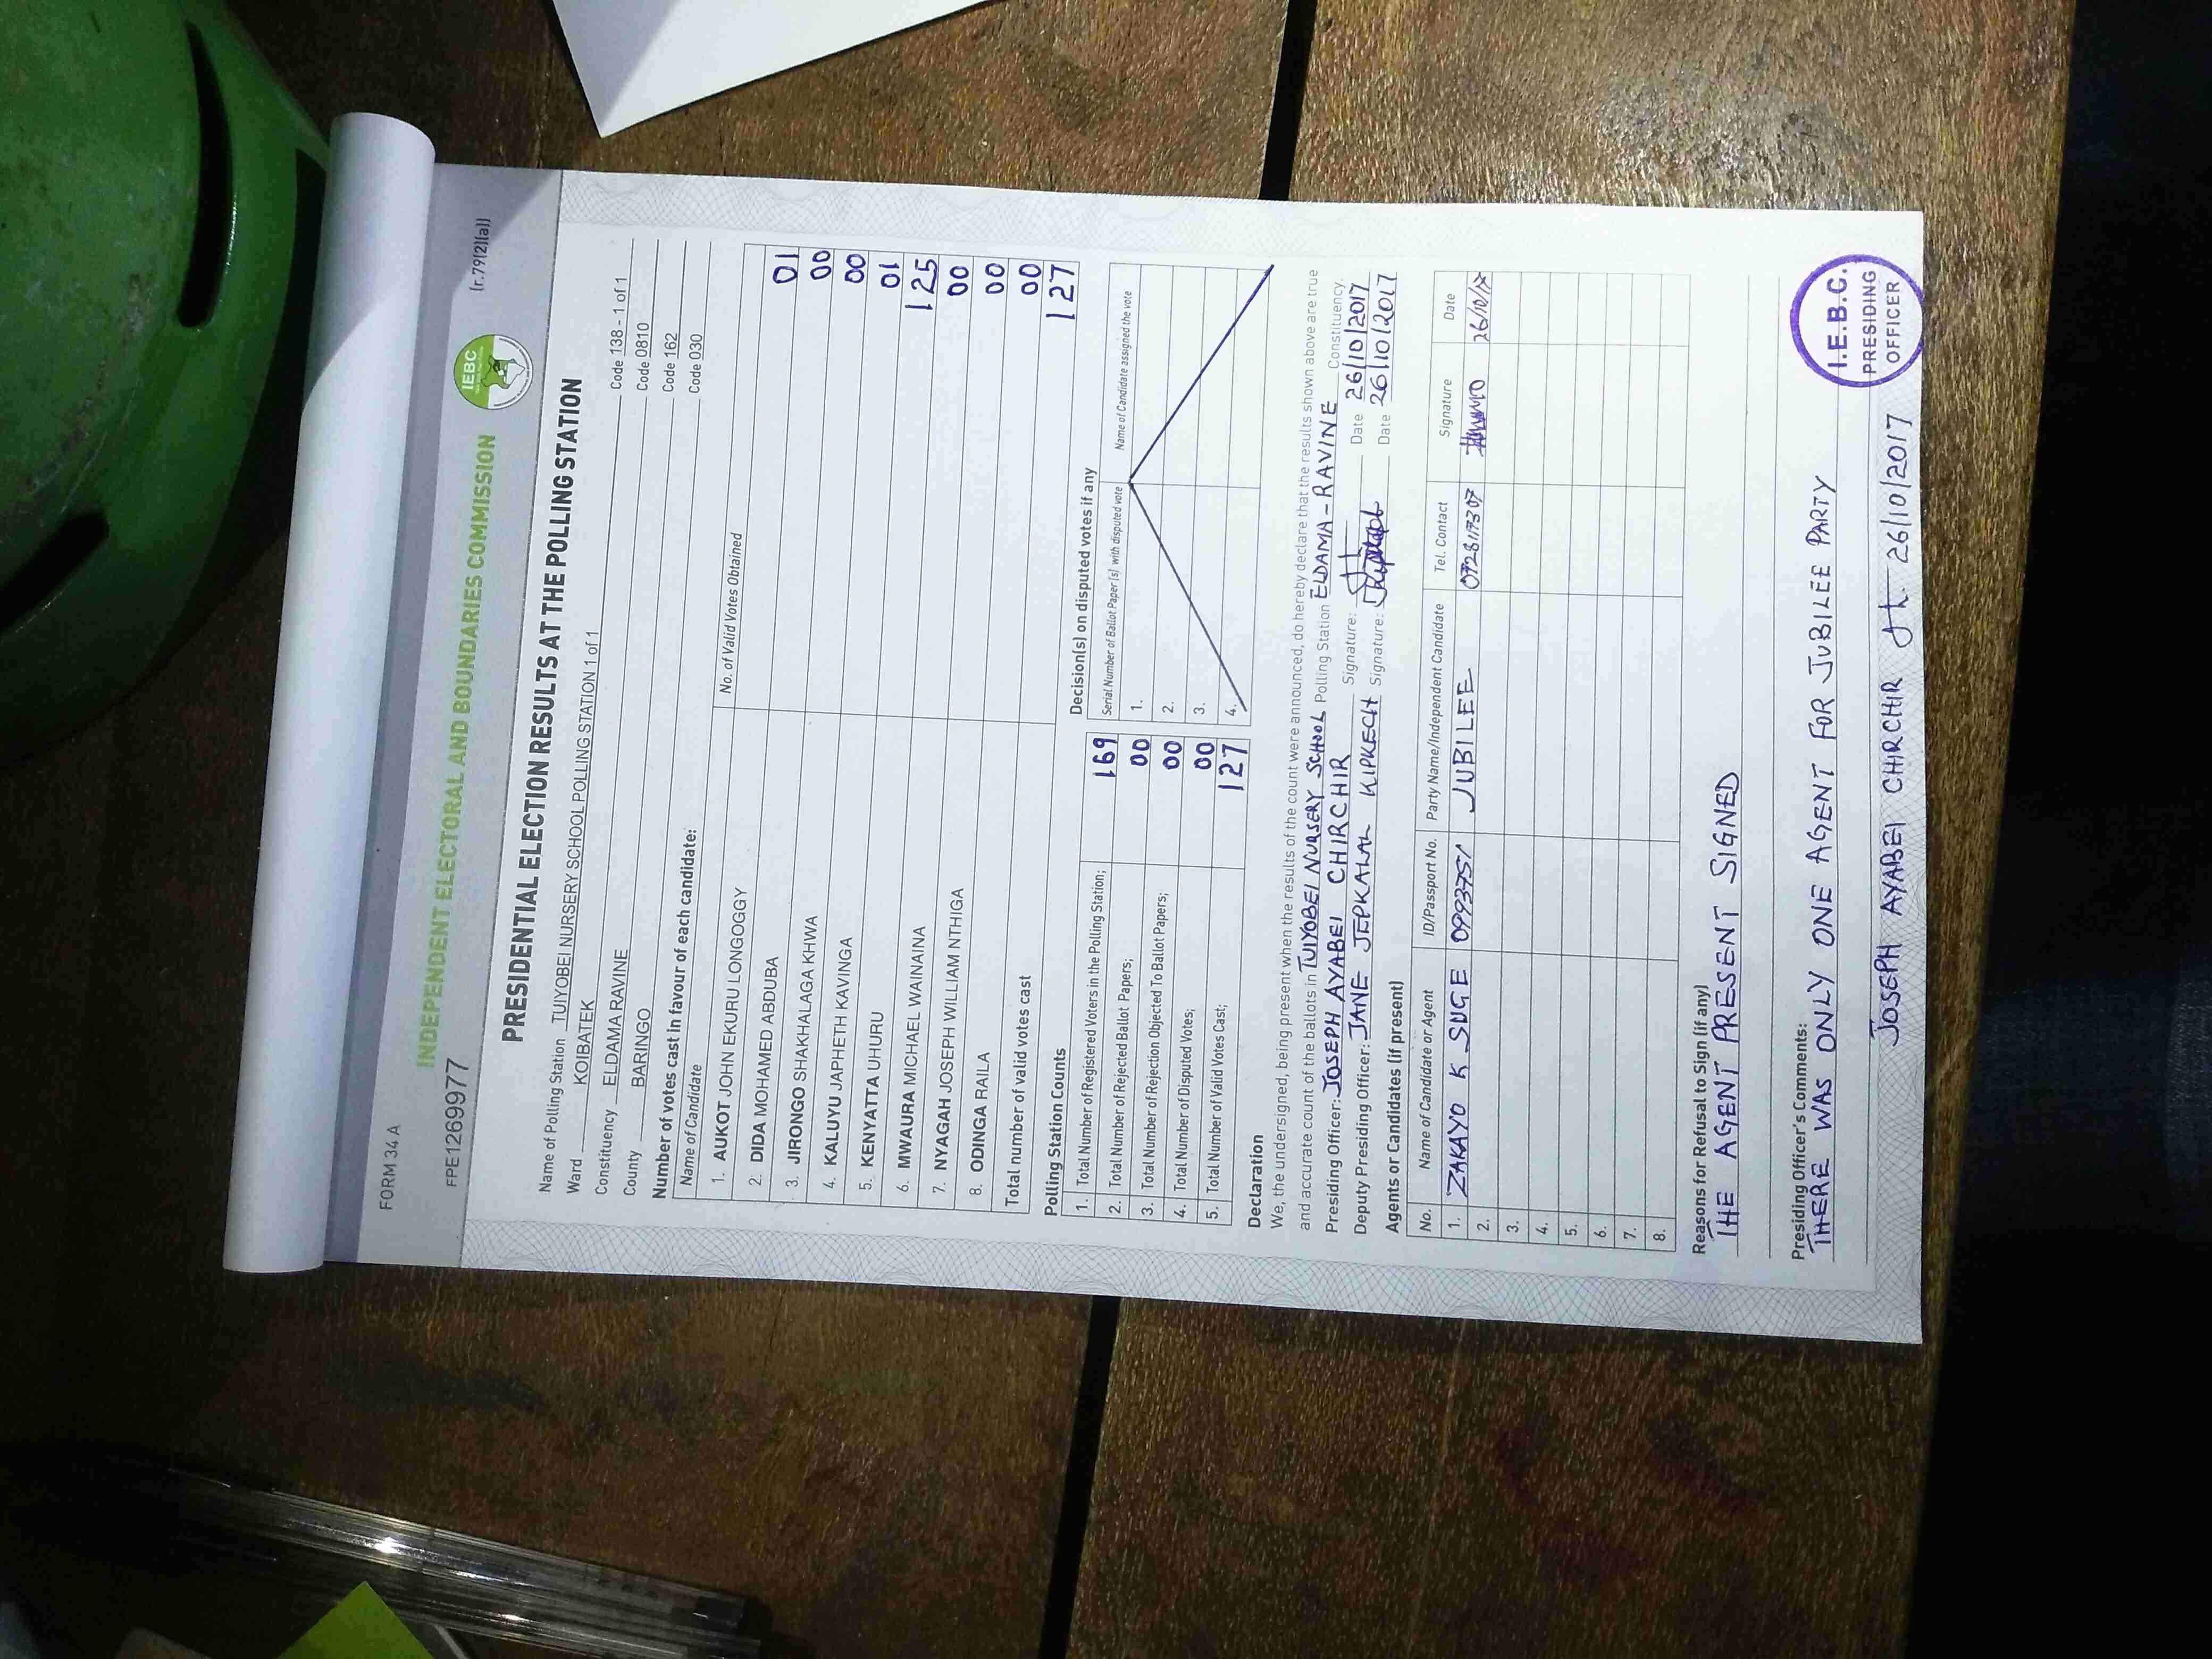 FORM 34 A
(r.79(2)(a))
FPE1269977
INDEPENDENT ELECTORAL AND BOUNDARIES COMMISSION
IEBC
PRESIDENTIAL ELECTION RESULTS AT THE POLLING STATION
Name of Polling Station TUIYOBEI NURSERY SCHOOL POLLING STATION 1 of 1 Code 138 - 1 of 1
Ward KOIBATEK Code 0810
Constituency ELDAMA RAVINE Code 162
County BARINGO Code 030
Number of votes cast in favour of each candidate:
Name of Candidate No. of Valid Votes Obtained
1. AUKOT JOHN EKURU LONGOGGY 01
2. DIDA MOHAMED ABDUBA 00
3. JIRONGO SHAKHALAGA KHWA 00
4. KALUYU JAPHETH KAVINGA 01
5. KENYATTA UHURU 125
6. MWAURA MICHAEL WAINAINA 00
7. NYAGAH JOSEPH WILLIAM NTHIGA 00
8. ODINGA RAILA 00
Total number of valid votes cast 127
Polling Station Counts
1. Total Number of Registered Voters in the Polling Station; 169
2. Total Number of Rejected Ballot Papers; 00
3. Total Number of Rejection Objected To Ballot Papers; 00
4. Total Number of Disputed Votes; 00
5. Total Number of Valid Votes Cast; 127
Decision(s) on disputed votes if any
Serial Number of Ballot Paper(s) with disputed vote Name of Candidate assigned the vote
1.
2.
3.
4.
Declaration
We, the undersigned, being present when the results of the count were announced, do hereby declare that the results shown above are true
and accurate count of the ballots in TUIYOBEI NURSERY SCHOOL Polling Station ELDAMA - RAVINE Constituency.
Presiding Officer: JOSEPH AYABEI CHIRCHIR Signature: Date 26/10/2017
Deputy Presiding Officer: JANE JEPKALAL KIPKECH Signature: Date 26/10/2017
Agents or Candidates (if present)
No. Name of Candidate or Agent ID/Passport No. Party Name/Independent Candidate Tel. Contact Signature Date
1. ZAKAYO K SUGE 0993751 JUBILEE 0728117307 26/10/17
2.
3.
4.
5.
6.
7.
8.
Reasons for Refusal to Sign (if any)
THE AGENT PRESENT SIGNED
Presiding Officer's Comments:
THERE WAS ONLY ONE AGENT FOR JUBILEE PARTY
JOSEPH AYABEI CHIRCHIR 26/10/2017
I.E.B.C.
PRESIDING
OFFICER